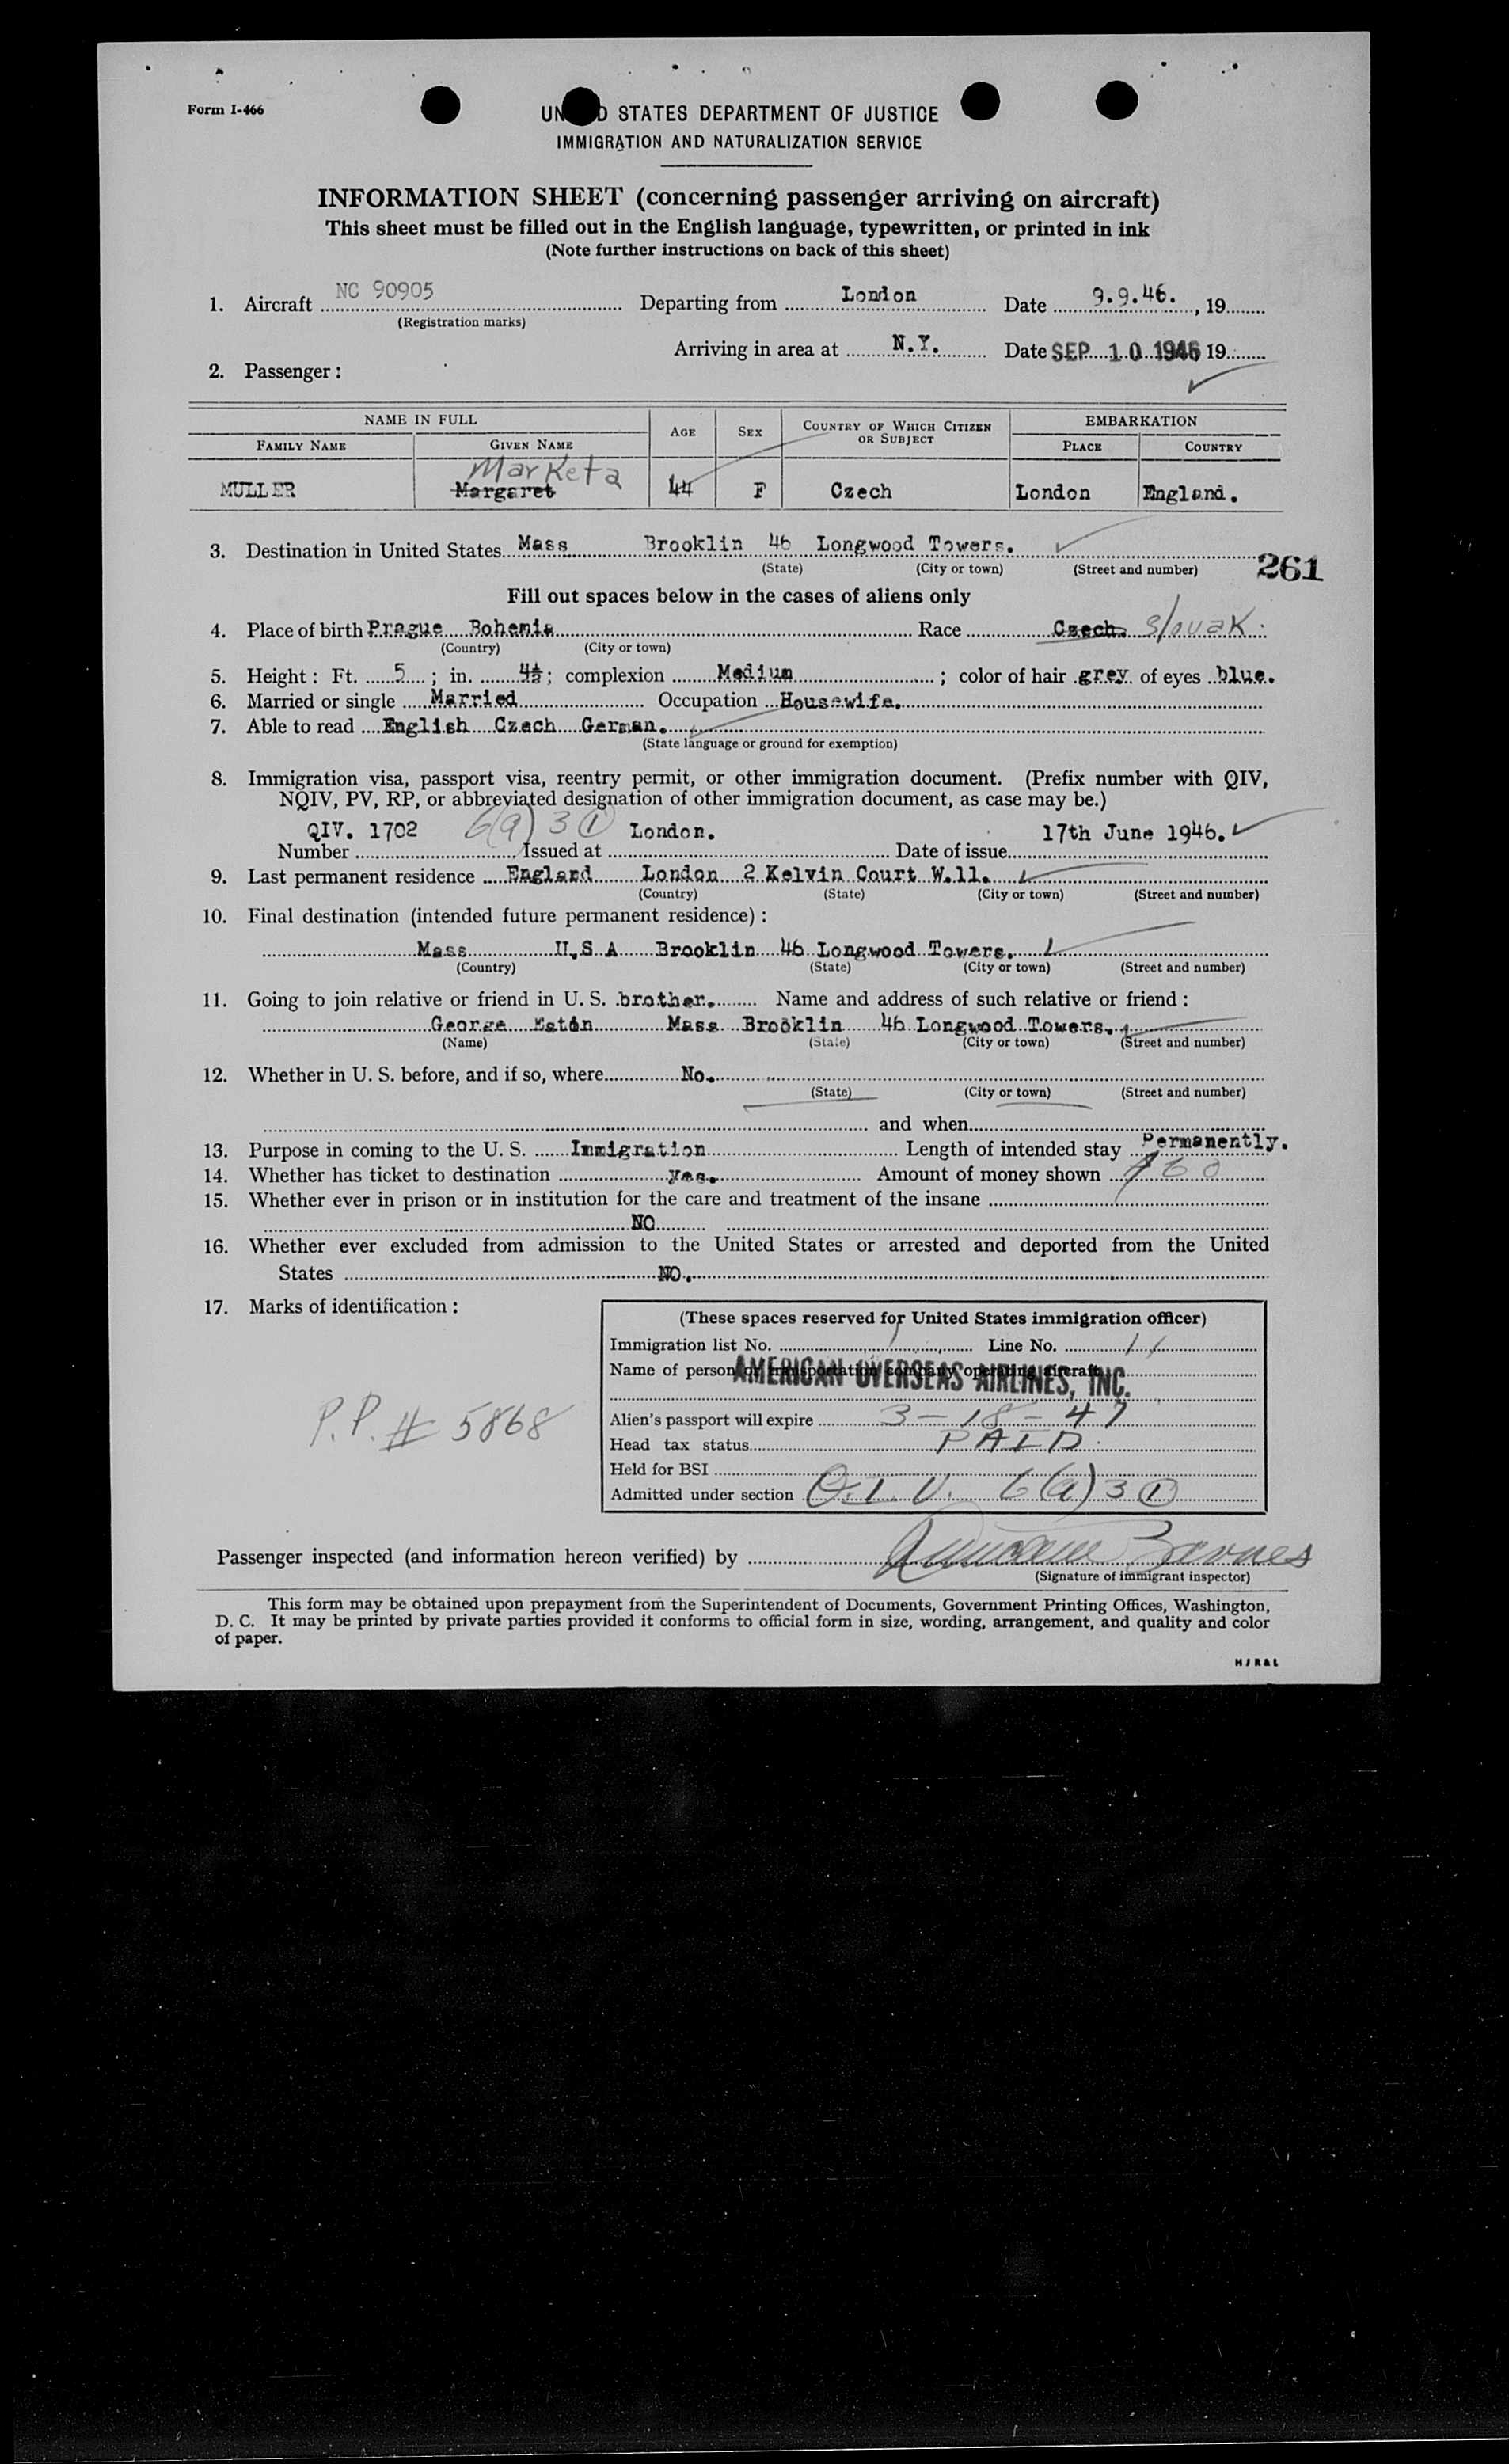 Form I-466
UNITED STATES DEPARTMENT OF JUSTICE
IMMIGRATION AND NATURALIZATION SERVICE
INFORMATION SHEET (concerning passenger arriving on aircraft)
This sheet must be filled out in the English language, typewritten, or printed in ink
(Note further instructions on back of this sheet)
1. Aircraft NC 90905 Departing from London Date 9.9.46. , 19
(Registration marks)
Arriving in area at N.Y. Date SEP 10 1946 19
2. Passenger :
NAME IN FULL AGE SEX COUNTRY OF WHICH CITIZEN OR SUBJECT EMBARKATION
FAMILY NAME GIVEN NAME PLACE COUNTRY
Marketa
MULLER Margaret 44 F Czech London England.
3. Destination in United States Mass Brooklin 46 Longwood Towers.
(State) (City or town) (Street and number) 261
Fill out spaces below in the cases of aliens only
4. Place of birth Prague Bohemia Race Czech. Slovak
(Country) (City or town)
5. Height : Ft. 5 ; in. 4½ ; complexion Medium ; color of hair grey of eyes blue.
6. Married or single Married Occupation Housewife.
7. Able to read English Czech German.
(State language or ground for exemption)
8. Immigration visa, passport visa, reentry permit, or other immigration document. (Prefix number with QIV,
NQIV, PV, RP, or abbreviated designation of other immigration document, as case may be.)
QIV. 1702 6(a) 3 (1) London. 17th June 1946.
Number Issued at Date of issue
9. Last permanent residence England London 2 Kelvin Court W.11.
(Country) (State) (City or town) (Street and number)
10. Final destination (intended future permanent residence) :
Mass U.S.A Brooklin 46 Longwood Towers.
(Country) (State) (City or town) (Street and number)
11. Going to join relative or friend in U. S. brother. Name and address of such relative or friend :
George Mass Brooklin 46 Longwood Towers.
(Name) (State) (City or town) (Street and number)
12. Whether in U. S. before, and if so, where No.
(State) (City or town) (Street and number)
and when
13. Purpose in coming to the U. S. Immigration Length of intended stay Permanently.
14. Whether has ticket to destination yes. Amount of money shown
15. Whether ever in prison or in institution for the care and treatment of the insane
NO
16. Whether ever excluded from admission to the United States or arrested and deported from the United
States NO.
17. Marks of identification :
P.P. # 5868
(These spaces reserved for United States immigration officer)
Immigration list No. 1 Line No. 11
Name of person or transportation company operating aircraft
AMERICAN OVERSEAS AIRLINES, INC.
Alien's passport will expire 3-18-47
Head tax status PAID
Held for BSI
Admitted under section Q.I.V. 6(a) 3 (1)
Passenger inspected (and information hereon verified) by Barnes
(Signature of immigrant inspector)
This form may be obtained upon prepayment from the Superintendent of Documents, Government Printing Offices, Washington,
D. C. It may be printed by private parties provided it conforms to official form in size, wording, arrangement, and quality and color
of paper.
H J R & L